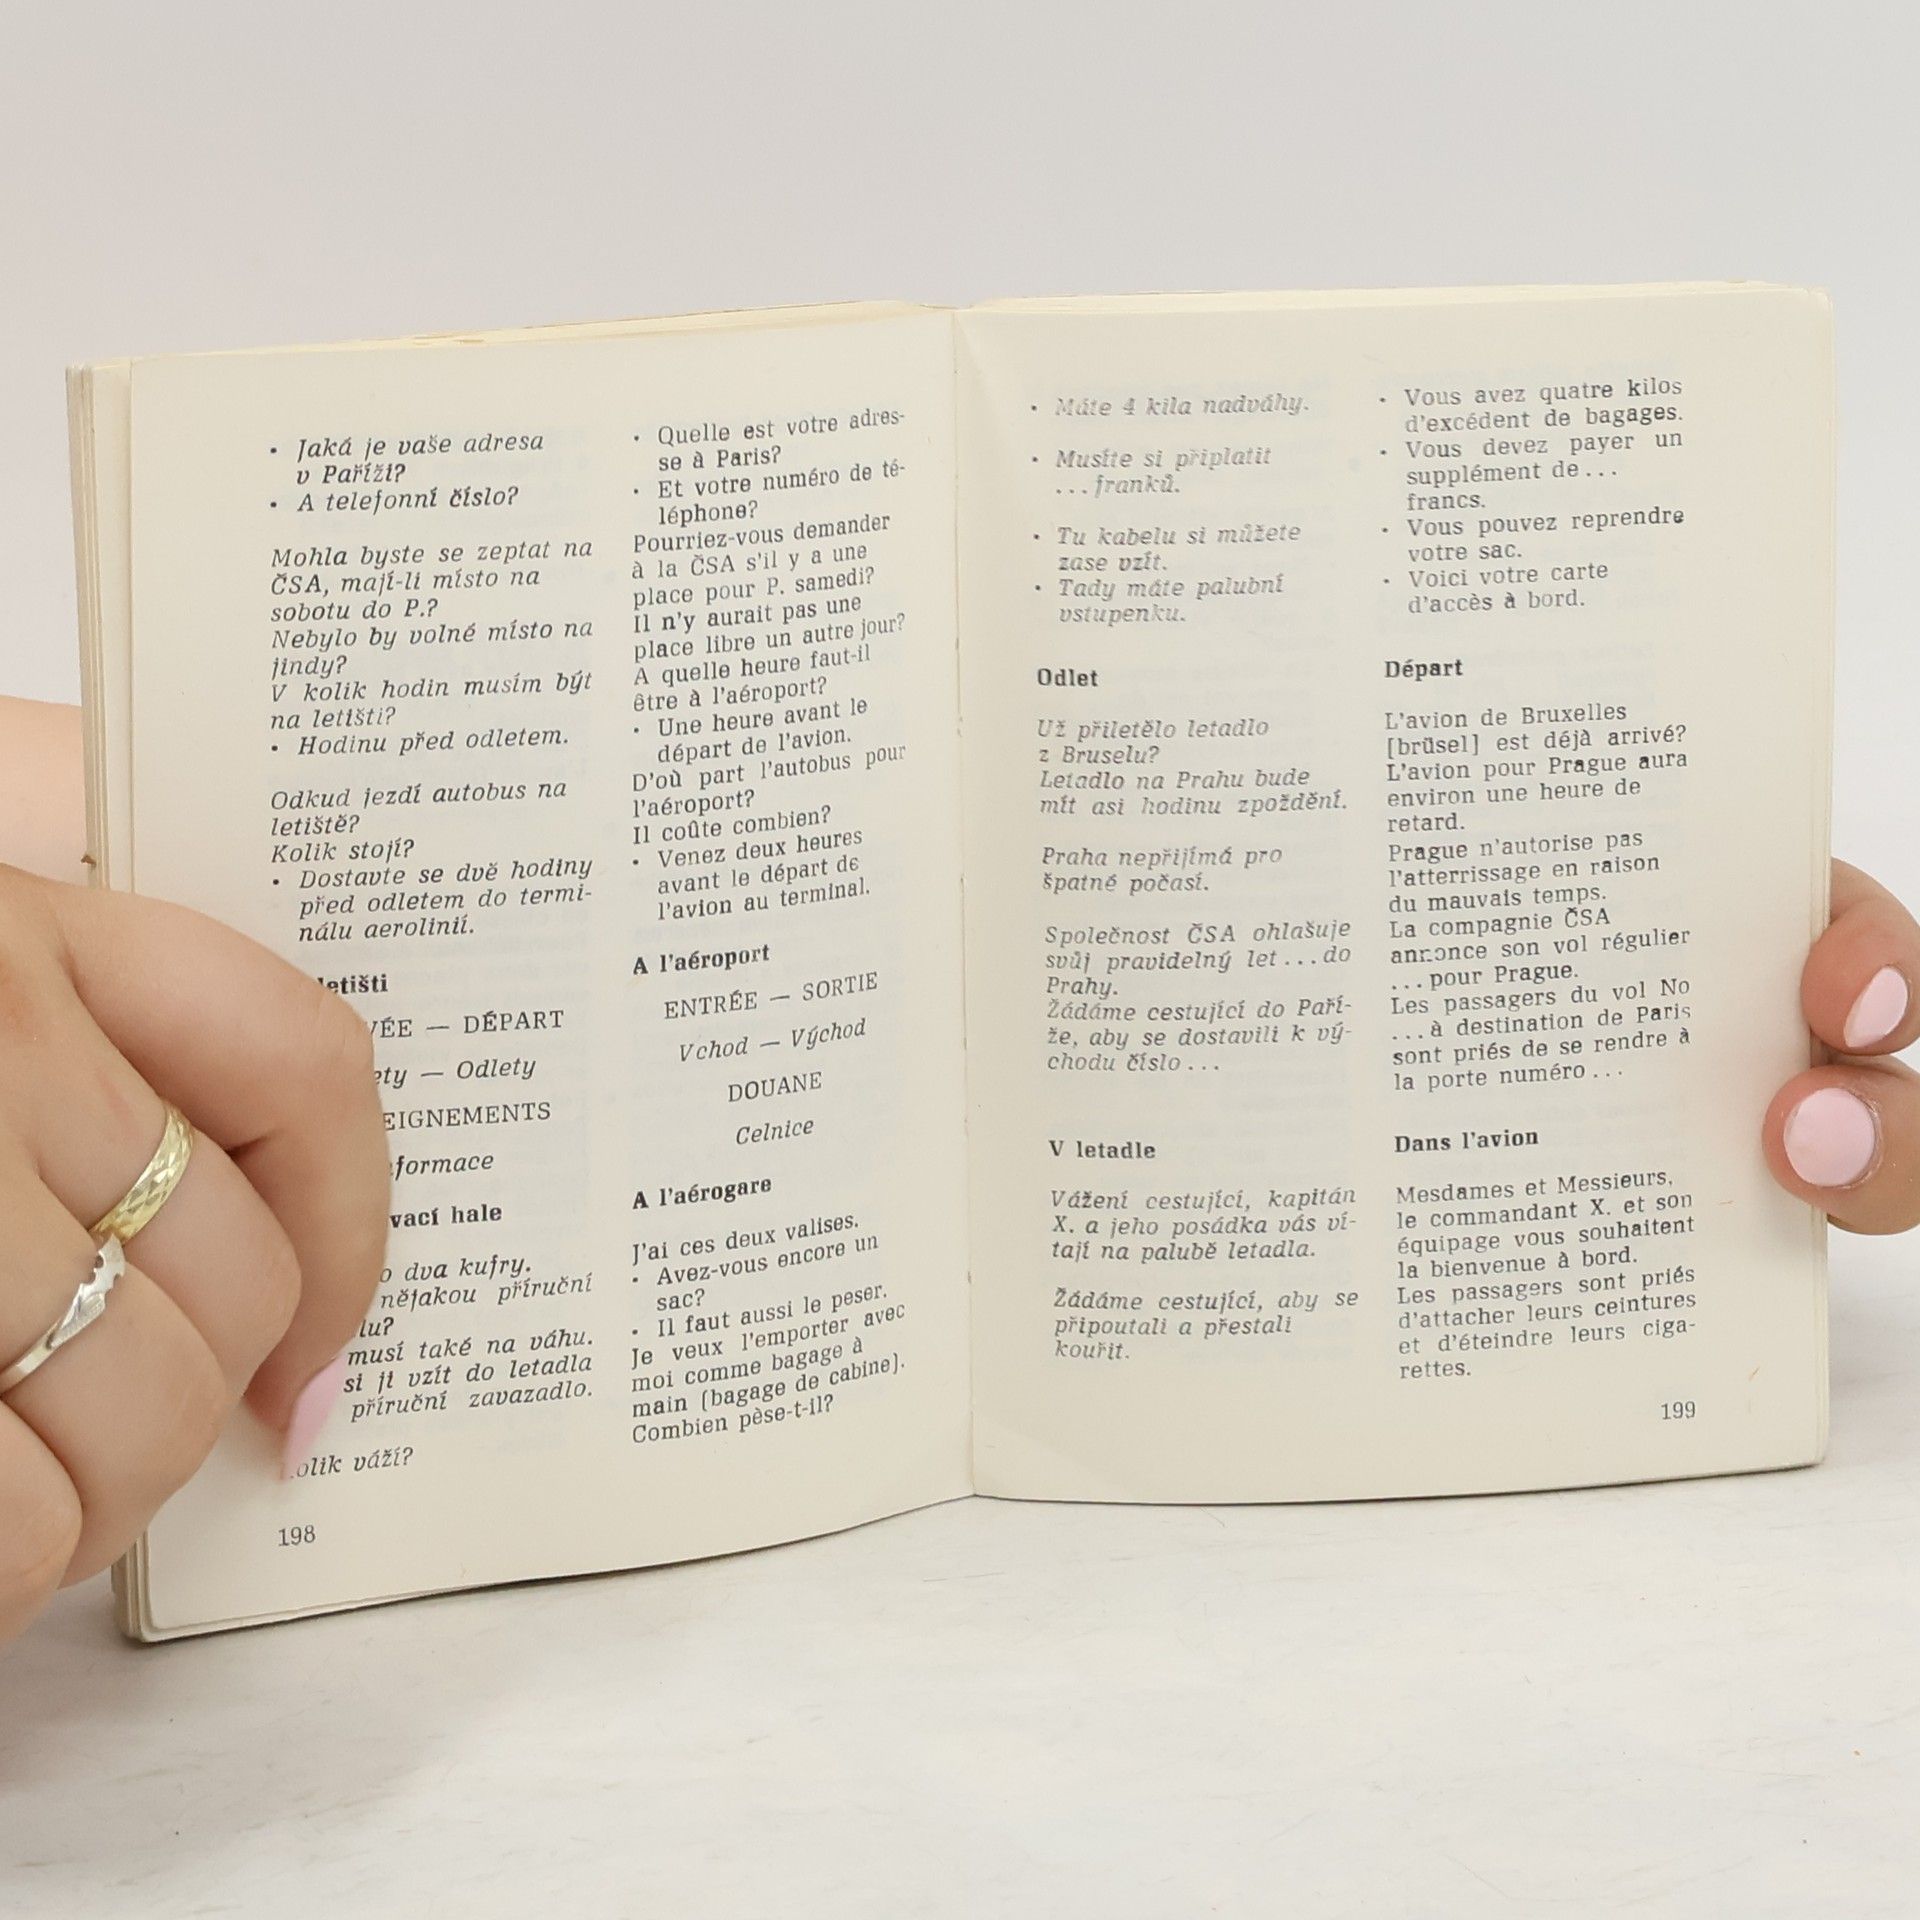 • Jaká je vaše adresa
v Paříži?
• A telefonní číslo?
Mohla byste se zeptat na
ČSA, mají-li místo na
sobotu do P.?
Nebylo by volné místo na
jindy?
V kolik hodin musím být
na letišti?
• Hodinu před odletem.
Odkud jezdí autobus na
letiště?
Kolik stojí?
• Dostavte se dvě hodiny
před odletem do termi-
nálu aerolinií.
letišti
— DÉPART
— Odlety
hale
dva kufry.
nějakou příruční
musí také na váhu.
si ji vzít do letadla
příruční zavazadlo.
váží?
198
• Quelle est votre adres-
se à Paris?
• Et votre numéro de té-
léphone?
Pourriez-vous demander
à la ČSA s'il y a une
place pour P. samedi?
Il n'y aurait pas une
place libre un autre jour?
A quelle heure faut-il
être à l'aéroport?
• Une heure avant le
départ de l'avion.
D'où part l'autobus pour
l'aéroport?
Il coûte combien?
• Venez deux heures
avant le départ de
l'avion au terminal.
A l'aéroport
ENTRÉE — SORTIE
Vchod — Východ
DOUANE
Celnice
A l'aérogare
J'ai ces deux valises.
• Avez-vous encore un
sac?
• Il faut aussi le peser.
Je veux l'emporter avec
moi comme bagage à
main (bagage de cabine).
Combien pèse-t-il?
• Máte 4 kila nadváhy.
• Musíte si připlatit
...franků.
• Tu kabelu si můžete
zase vzít.
• Tady máte palubní
vstupenku.
Odlet
Už přiletělo letadlo
z Bruselu?
Letadlo na Prahu bude
mít asi hodinu zpoždění.
Praha nepřijímá pro
špatné počasí.
Společnost ČSA ohlašuje
svůj pravidelný let...do
Prahy.
Žádáme cestující do Paří-
že, aby se dostavili k vý-
chodu číslo...
V letadle
Vážení cestující, kapitán
X. a jeho posádka vás ví-
tají na palubě letadla.
Žádáme cestující, aby se
připoutali a přestali
kouřit.
• Vous avez quatre kilos
d'excédent de bagages.
• Vous devez payer un
supplément de...
francs.
• Vous pouvez reprendre
votre sac.
• Voici votre carte
d'accès à bord.
Départ
L'avion de Bruxelles
[brüsel] est déjà arrivé?
L'avion pour Prague aura
environ une heure de
retard.
Prague n'autorise pas
l'atterrissage en raison
du mauvais temps.
La compagnie ČSA
annonce son vol régulier
...pour Prague.
Les passagers du vol No
...à destination de Paris
sont priés de se rendre à
la porte numéro...
Dans l'avion
Mesdames et Messieurs,
le commandant X. et son
équipage vous souhaitent
la bienvenue à bord.
Les passagers sont priés
d'attacher leurs ceintures
et d'éteindre leurs ciga-
rettes.
199